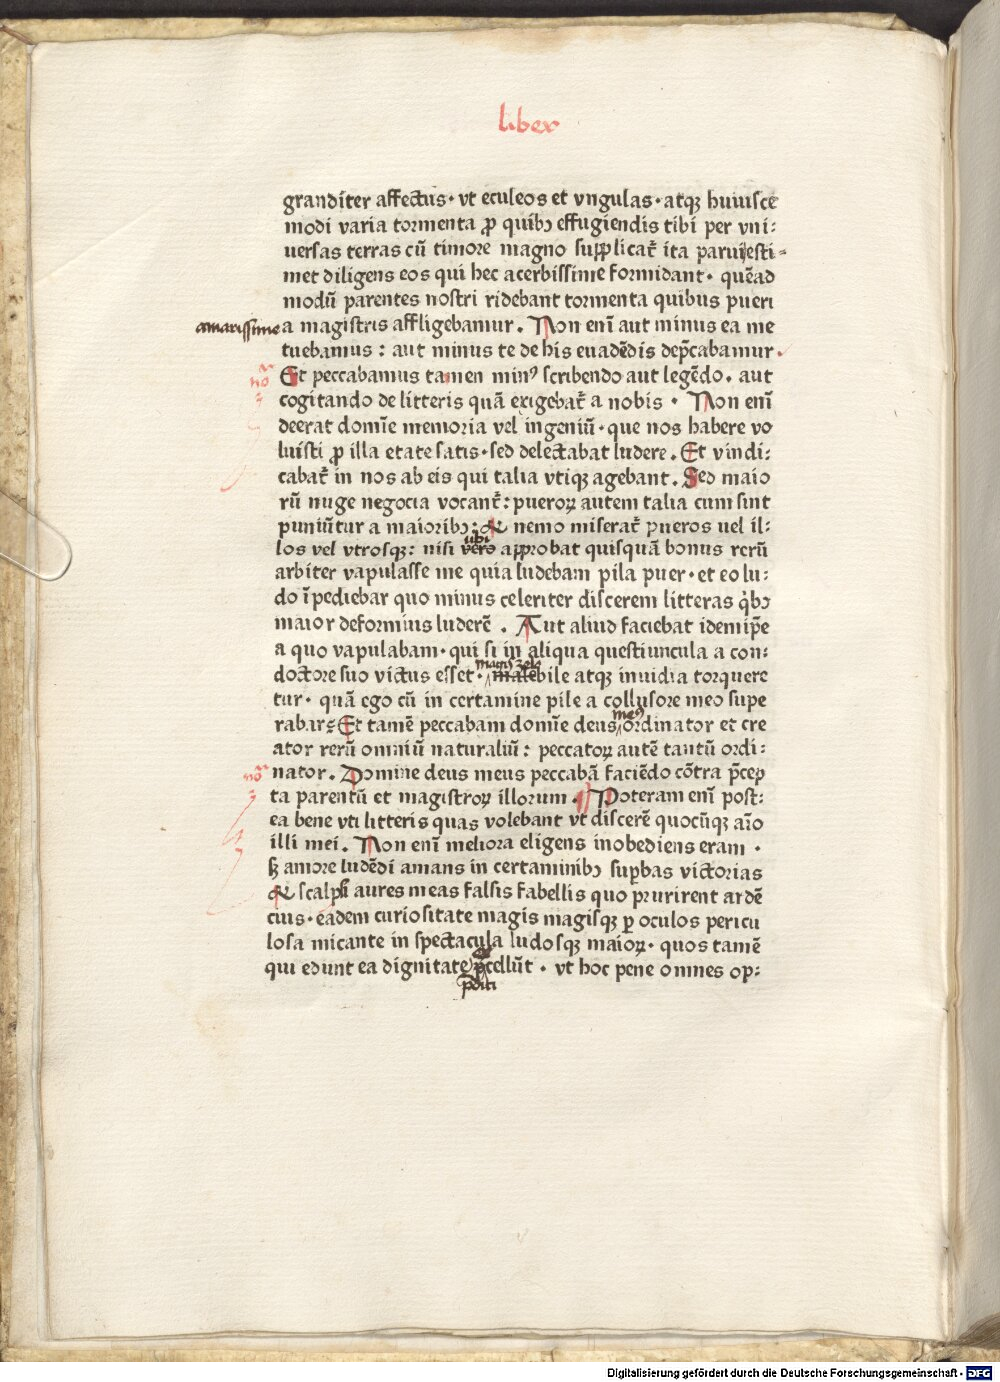 liber
granditer affectus· vt eculeos et vngulas· atqꝫ huiusce
modi varia tormenta ꝓ quibꝰ effugiendis tibi per vni:
uersas terras cū timore magno supplicat̄ ita parui esti-
met diligens eos qui hec acerbissime formidant· quēad
modū parentes nostri ridebant tormenta quibus pueri
amarissime
a magistris affligebamur. Non enī aut minus ea me
tuebamus: aut minus te de his euadēdis dep̄cabamur.
Et peccabamus tamen minꝰ scribendo aut legēdo. aut
cogitando de litteris quā exigebat̄ a nobis · Non enī
deerat domīe memoria vel ingeniū· que nos habere vo
luisti ꝓ illa etate satis· sed delectabat ludere. Et vindi:
cabat̄ in nos ab eis qui talia vtiqꝫ agebant. Sed maio
rū nuge negocia vocant̄: pueroꝝ autem talia cum sint
puniūtur a maioribꝰ: & nemo miserat̄ pueros uel il-
los vel vtrosqꝫ: nisi vero approbat quisquā bonus rerū
ubi
arbiter vapulasse me quia ludebam pila puer· et eo lu:
do īpediebar quo minus celeriter discerem litteras qͥbꝰ
maior deformius luderē . Aut aliud faciebat idemip̄e
a quo vapulabam· qui si in aliqua questiuncula a con:
doctore suo victus esset· malebile atqꝫ inuidia torquere
tur· quā ego cū in certamine pile a collusore meo supe
rabar: Et tamē peccabam domīe deus ordinator et cre
meꝰ
ator rerū omniū naturaliū: peccatoꝝ autē tantū ordi:
nator. Domine deus meus peccabā faciēdo cōtra p̄cep
ta parentū et magistroꝝ illorum. Poteram enī post:
ea bene vti litteris quas volebant vt discerē quocūqꝫ aīo
illi mei. Non enī meliora eligens inobediens eram ·
sꝫ amore ludēdi amans in certaminibꝰ sup̱bas victorias
& scalpi aures meas falsis fabellis quo prurirent ardē
cius· eadem curiositate magis magisqꝫ ꝑ oculos pericu
losa micante in spectacula ludosqꝫ maioꝝ· quos tamē
qui edunt ea dignitate p̄cellūt · vt hoc pene omnes op: